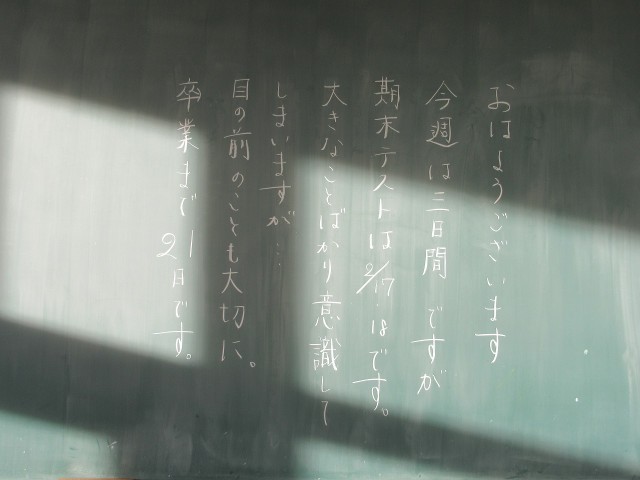 おはようございます
今週は三日間ですが
期末テストは2/17 18です。
大きなことばかり意識して
しまいますが…
目の前のことも大切に。
卒業まで21日です。